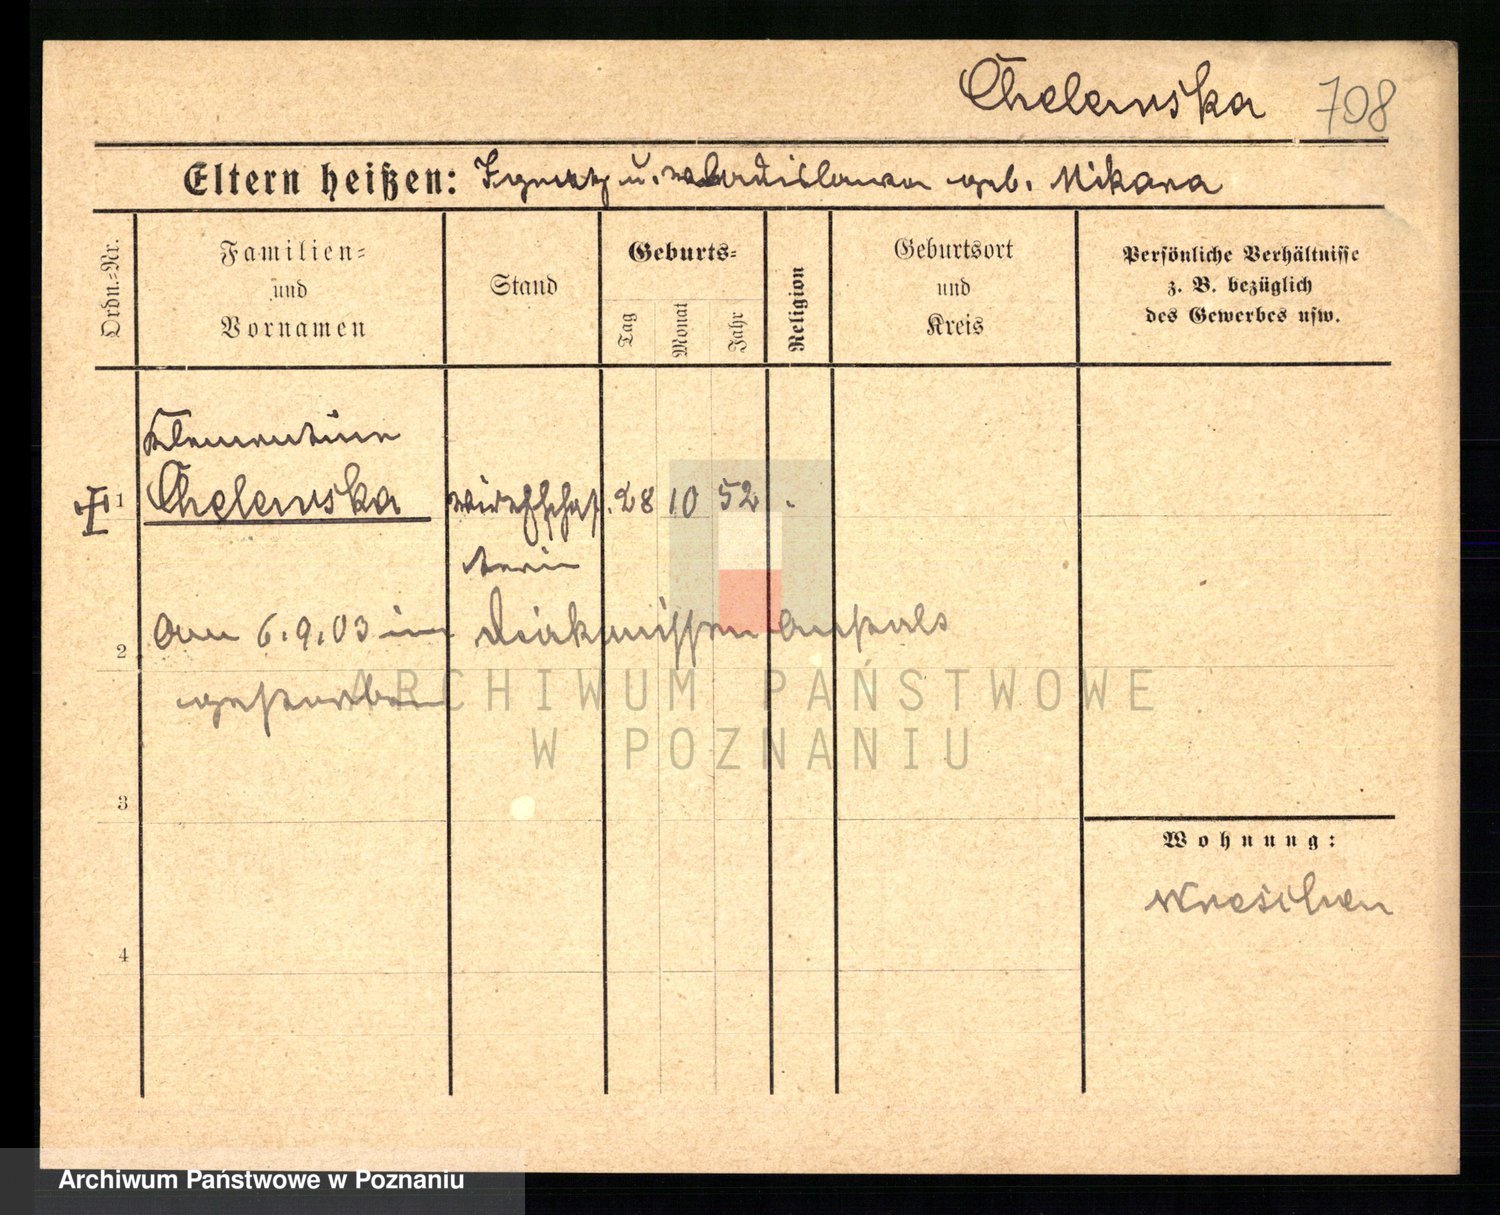 Chelewska 708
Eltern heißen: Ignatz u. Wladislawa geb. Mikara
Ordn.-Nr.
Familien-
und
Vornamen
Stand
Geburts-
Tag
Monat
Jahr
Religion
Geburtsort
und
Kreis
Persönliche Verhältnisse
z. B. bezüglich
des Gewerbes usw.
Klementine
1 Chelewska Wirthschaf- 28 10 52
terin
2 Am 6.9.03 im Diakonissen
gestorben
ARCHIWUM PAŃSTWOWE
W POZNANIU
3
Wohnung:
Wreschen
4
Archiwum Państwowe w Poznaniu